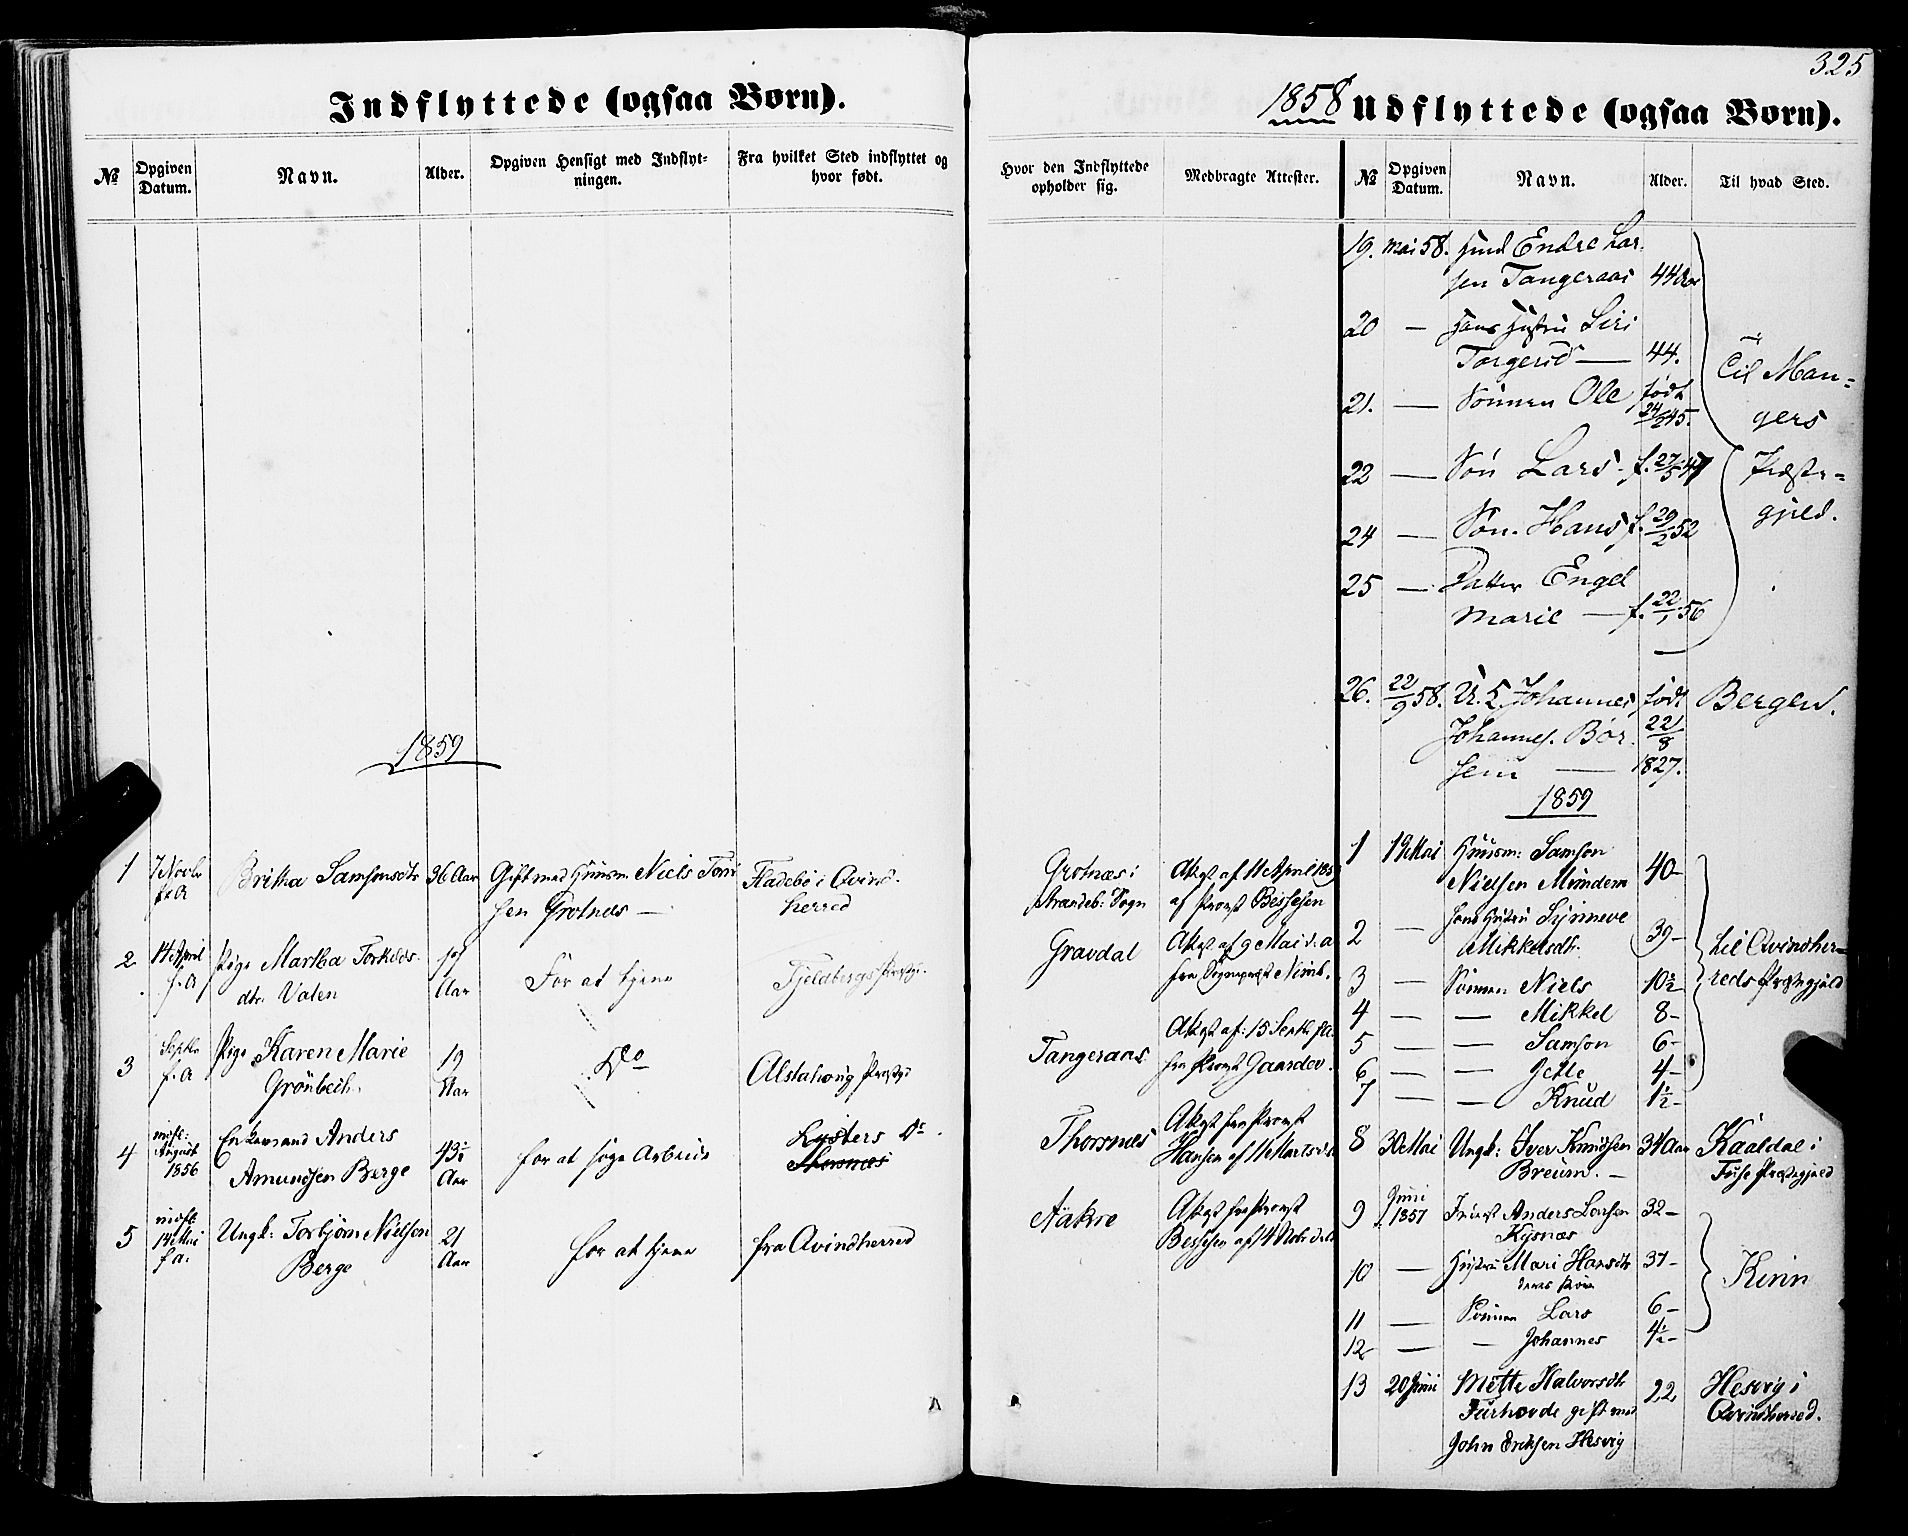 325
Indflyttede (ogsaa Børn).
№
Opgiven Datum.
Navn.
Alder.
Opgiven Hensigt med Indflyt-
ningen.
Fra hvilket Sted indflyttet og
hvor født.
Hvor den Indflyttede
opholder sig.
Medbragte Attester.
1859
1 7 Novbr f.A Britha Samsonsdtr 36 Aar Gift med Huusm. Niels Tor
sen Grotnes — Fladebø i Qvind-
herred Grotnæs i
Strandeb: Sogn Attest af 11 April 1859
af Provst Bessesen
2 14 April f.A Pige Martha Torkelds-
dtr. Valen 19
Aar For at tjene Fjeldbergs Prstgj. Gravdal Attest af 9 Mai d. a
fra Sogneprst
3 Septbr f.A Pige Karen Marie
Grönbech. 19
Aar Do Alstahoug Prstgj Tangeraas Attest af: 15 Septb. f.a.
fra Provst
4 indfl:
August
1856 Enkemand Anders
Amundsen Berge 43½
Aar for at søge Arbeide Lysters Do.
Thorsnæs Attest fra Provst
Hansen af 11 Marts d.a
5 indfl:
Mai
f.a. Ungk: Torbjørn Nielsen
Berge 21
Aar for at tjene fra Qvindherred Aakre Attest fra Provst
Bessesen af 14 Novbr d.a.
1858
Udflyttede (ogsaa Børn).
№
Opgiven
Datum.
Navn.
Alder.
Til hvad Sted.
19. mai 58. Huusm Endre Lar-
sen Tangeraas 44 Aar
20 — Hans Hustru Siri
Torgersd — 44.
21. — Sønnen Ole født
24/2 45.
22 — Søn Lars f. 27/5 47
24 — Søn. Hans f. 29/2 52
25 — Datter Engel
Marie — f. 22/1 56
Til Man-
gers
Præste-
gjeld.
26. 22/9 58. U. K. Johannes
Johannes. Bor-
sem — født
22/8
1827. Bergen.
1859
1 19 Mai Huusm: Samson
Nielsen Mundem 40-
2 — Hans Hustru Synneve
Mikkelsdtr. 39-
3 — Sønnen Niels 10½
4 — — Mikkel 8-
5 — — Samson 6-
6 — — Gitle 4-
7 — — Knud 1½-
til Qvindher-
reds Præstegjeld
8 30 Mai Ungk: Iver Knudsen
Breum. — 34 Aar Kaaldal i
Fuse Præstegjeld
9 Juni
1857 Inderst Anders Larsen
Kysnæs 32-
10 — Hustru Mari Hansdtr
deres Børn 37-
11 — Sønnen Lars 6-
12 — — Johannes 4½-
Kinn
13 20 Juni Mette Halvorsdtr
Furhovde gift med
John Eriksen Hesvig 22 Hesvig i
Qvindherred.